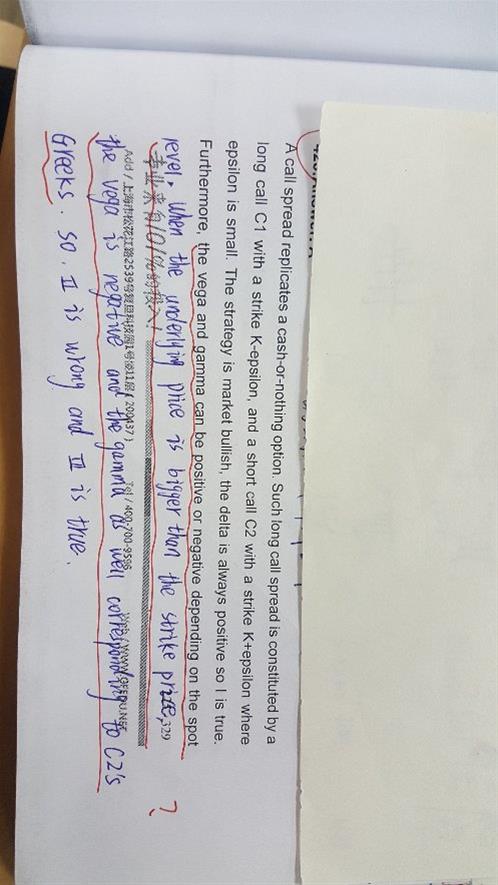 A call spread replicates a cash-or-nothing option. Such long call spread is constituted by a
long call C1 with a strike K-epsilon, and a short call C2 with a strike K+epsilon where
epsilon is small. The strategy is market bullish, the delta is always positive so I is true.
Furthermore, the vega and gamma can be positive or negative depending on the spot
level. When the underlying price is bigger than the strike price,
329
专业来自101%的投入!
the vega is negative and the gamma as well corresponding to C2's
Add / 上海市松花江路2539号复旦科技园1号楼11层 (200437) Tel / 400-700-9596
Greeks. so. II is wrong and III is true.
?